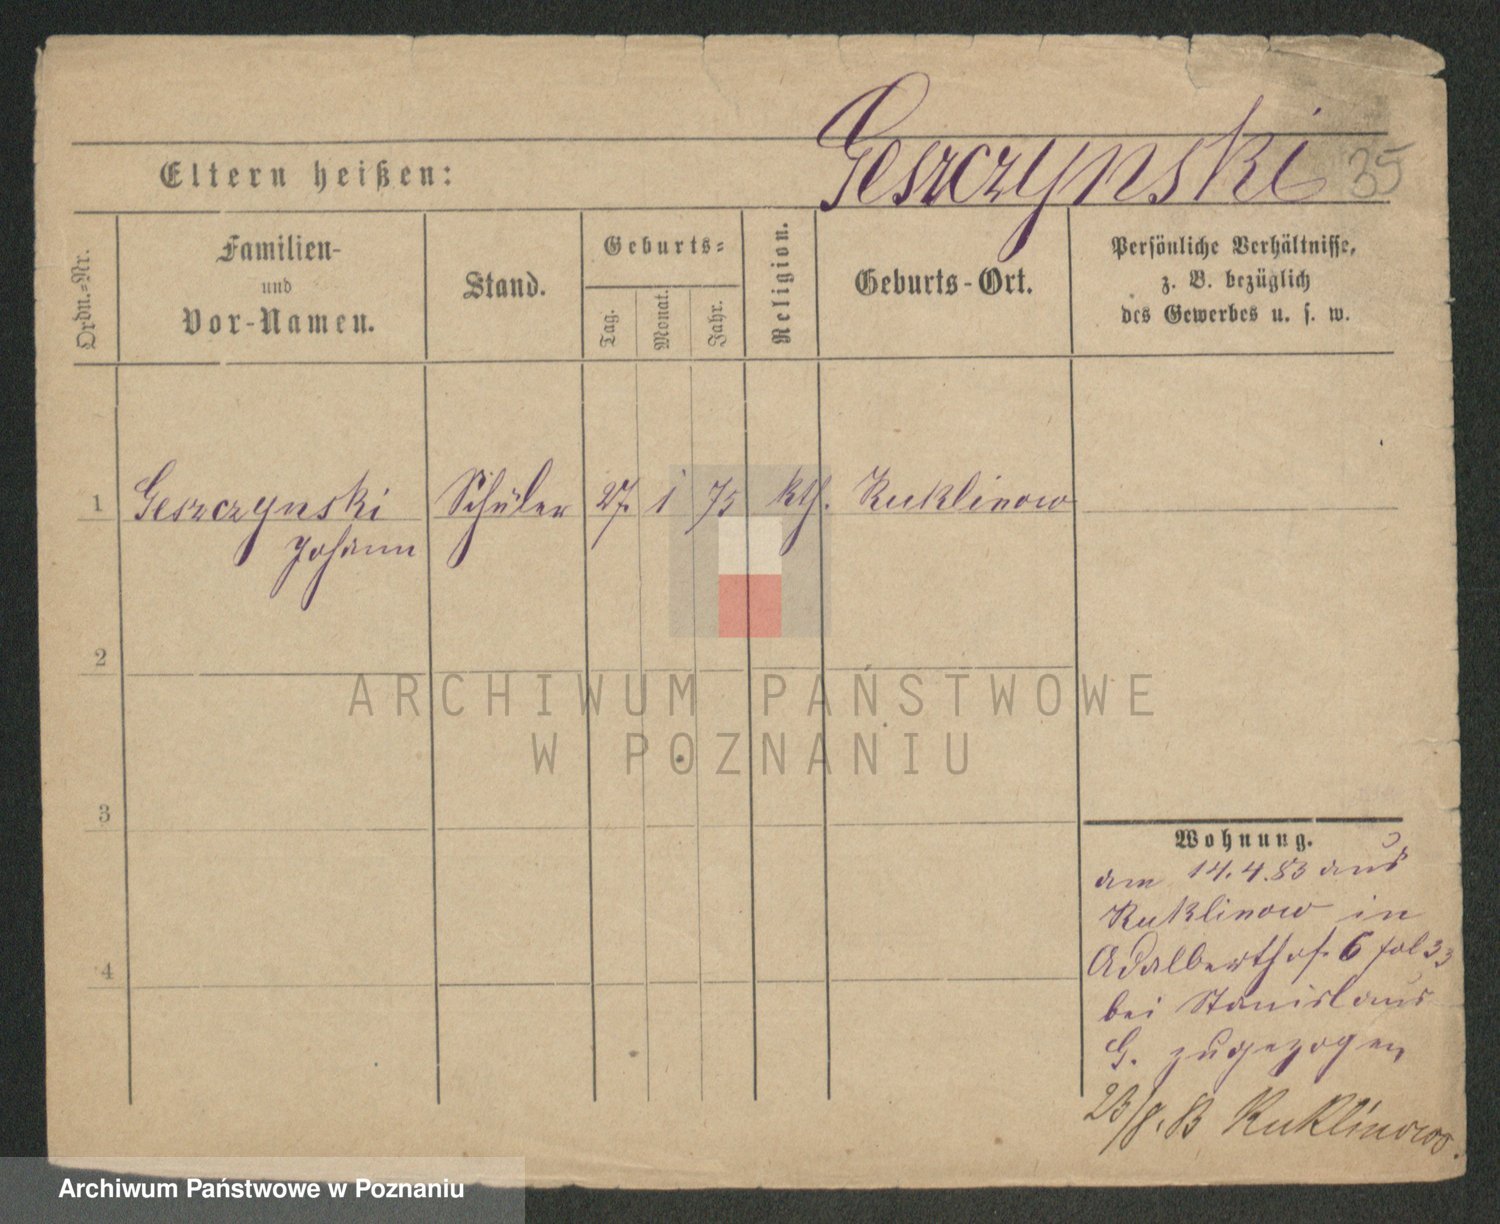 Geszczynski 35
Eltern heißen:
Ordn.-Nr.
Familien-
und
Vor-Namen.
Stand.
Geburts-
Tag.
Monat.
Jahr.
Religion.
Geburts-Ort.
Persönliche Verhältnisse,
z. B. bezüglich
des Gewerbes u. s. w.
1 Geszczynski Schüler 27. 1 75 kth. Kuklinow
Johann
2
ARCHIWUM PAŃSTWOWE
W POZNANIU
3
Wohnung.
am 14.4.83 aus
Kuklinow in
4
Adalberthof. 6 fol 33
bei Stanislaus
G. zugezogen
23/8.83 Kuklinowo.
Archiwum Państwowe w Poznaniu